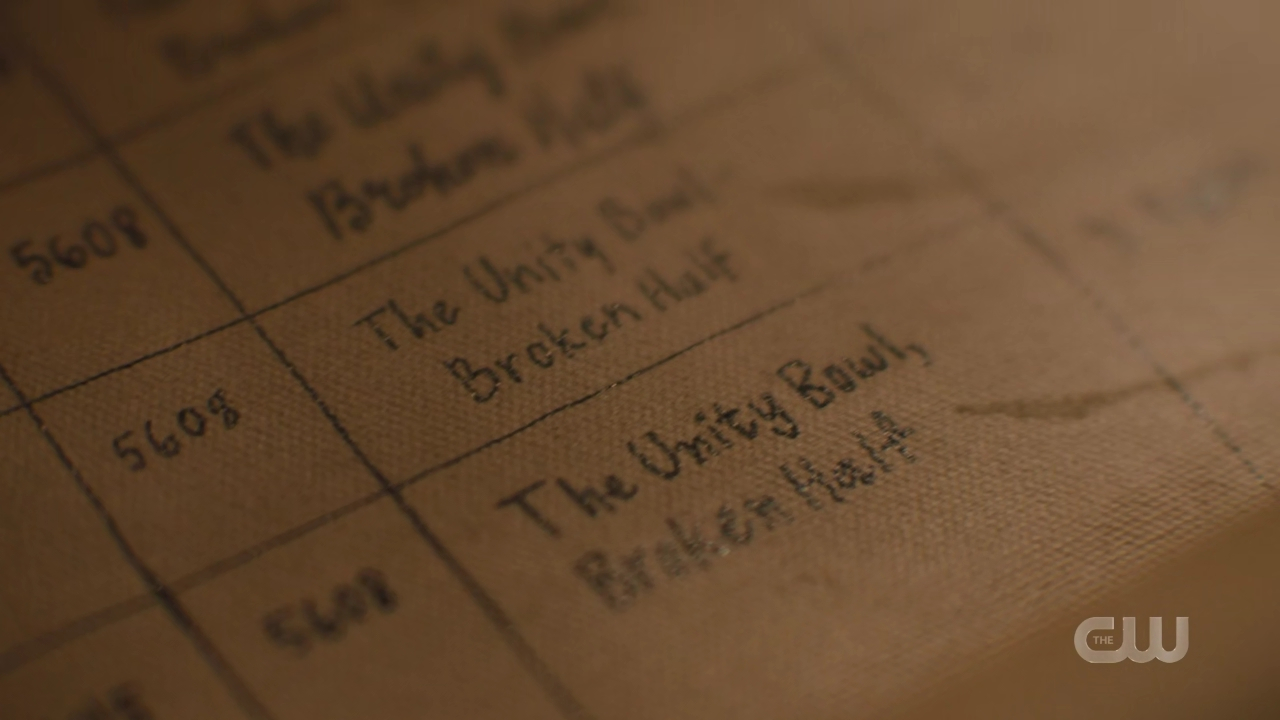 The Unity
Broken Half
5608
The Unity Bowl
Broken Half
5608
The Unity Bowl,
Broken Half
5608
THE CW